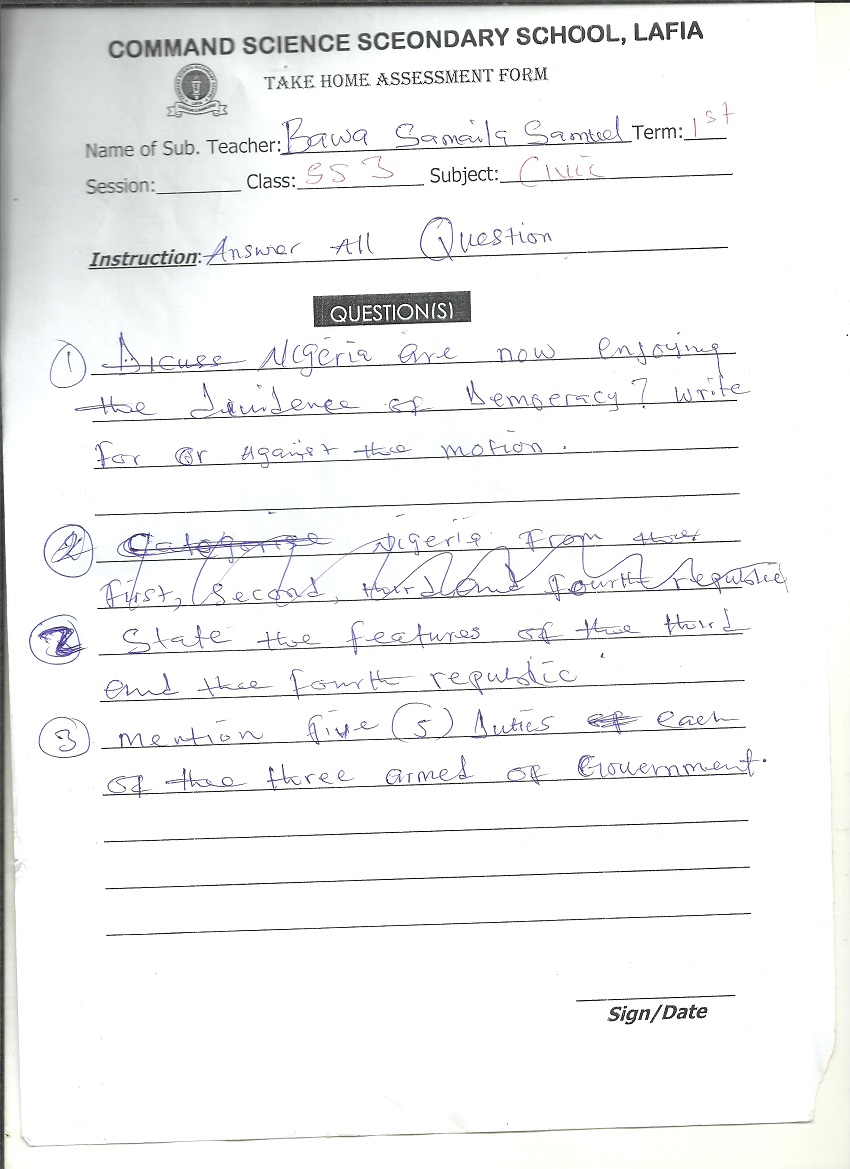 COMMAND SCIENCE SCEONDARY SCHOOL, LAFIA
TAKE HOME ASSESSMENT FORM
Name of Sub. Teacher: Bawa Samaila Samuel Term: 1st
Session: Class: SS 3 Subject: Civic
Instruction: Answer All Question
QUESTION(S)
1 Dicuss Nigeria are now enjoying
the of Democracy? Write
for or against the motion.
2 Categorise Nigeria from the
first, second, third and fourth republic
2 State the features of the third
and the fourth republic
3 mention five (5) Duties of each
of the three armed of Government.
Sign/Date